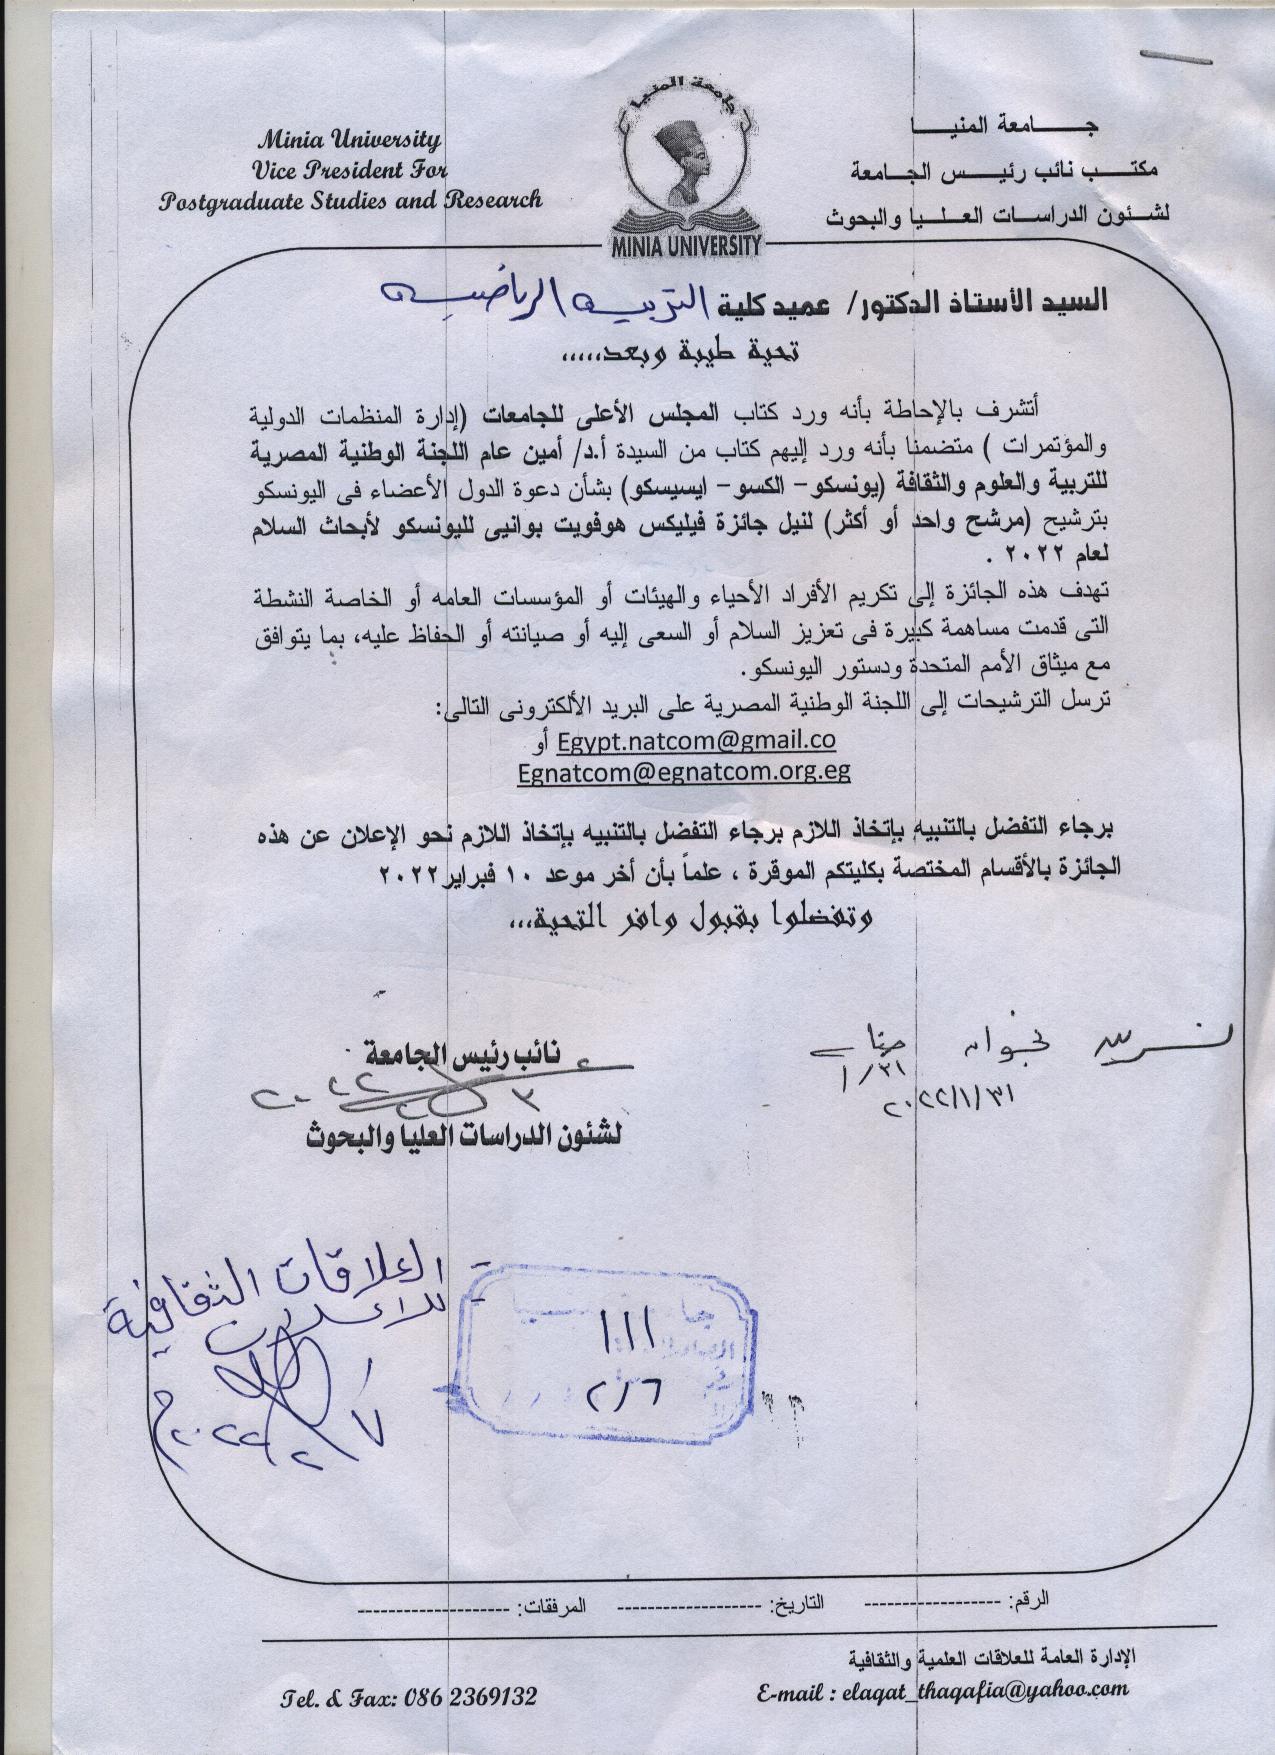 جامعة المنيا
مكتب نائب رئيس الجامعة
لشئون الدراسات العليا والبحوث
جامعة المنيا
MINIA UNIVERSITY
Minia University
Vice President For
Postgraduate Studies and Research
السيد الأستاذ الدكتور/ عميد كلية التربية الرياضية
تحية طيبة وبعد.....
أتشرف بالإحاطة بأنه ورد كتاب المجلس الأعلى للجامعات (إدارة المنظمات الدولية
والمؤتمرات ) متضمنا بأنه ورد إليهم كتاب من السيدة أ.د/ أمين عام اللجنة الوطنية المصرية
للتربية والعلوم والثقافة (يونسكو- الكسو- ايسيسكو) بشأن دعوة الدول الأعضاء فى اليونسكو
بترشيح (مرشح واحد أو أكثر) لنيل جائزة فيليكس هوفويت بوانيى لليونسكو لأبحاث السلام
لعام ٢٠٢٢ .
تهدف هذه الجائزة إلى تكريم الأفراد الأحياء والهيئات أو المؤسسات العامه أو الخاصة النشطة
التى قدمت مساهمة كبيرة فى تعزيز السلام أو السعى إليه أو صيانته أو الحفاظ عليه، بما يتوافق
مع ميثاق الأمم المتحدة ودستور اليونسكو.
ترسل الترشيحات إلى اللجنة الوطنية المصرية على البريد الألكترونى التالى:
Egypt.natcom@gmail.co أو
Egnatcom@egnatcom.org.eg
برجاء التفضل بالتنبيه بإتخاذ اللازم برجاء التفضل بالتنبيه بإتخاذ اللازم نحو الإعلان عن هذه
الجائزة بالأقسام المختصة بكليتكم الموقرة ، علماً بأن أخر موعد ١٠ فبراير٢٠٢٢
وتفضلوا بقبول وافر التحية...
نسرين نجوان
١/٣١
٢٠٢٢/١/٣١
نائب رئيس الجامعة
لشئون الدراسات العليا والبحوث
العلاقات الثقافية
للإعلان
٢٠٢٢/٢/٧م
١١١
٢/٦
الرقم: ------------------ التاريخ: ------------------- المرفقات: --------------------
الإدارة العامة للعلاقات العلمية والثقافية
E-mail : elaqat_thaqafia@yahoo.com
Tel. & Fax: 086 2369132